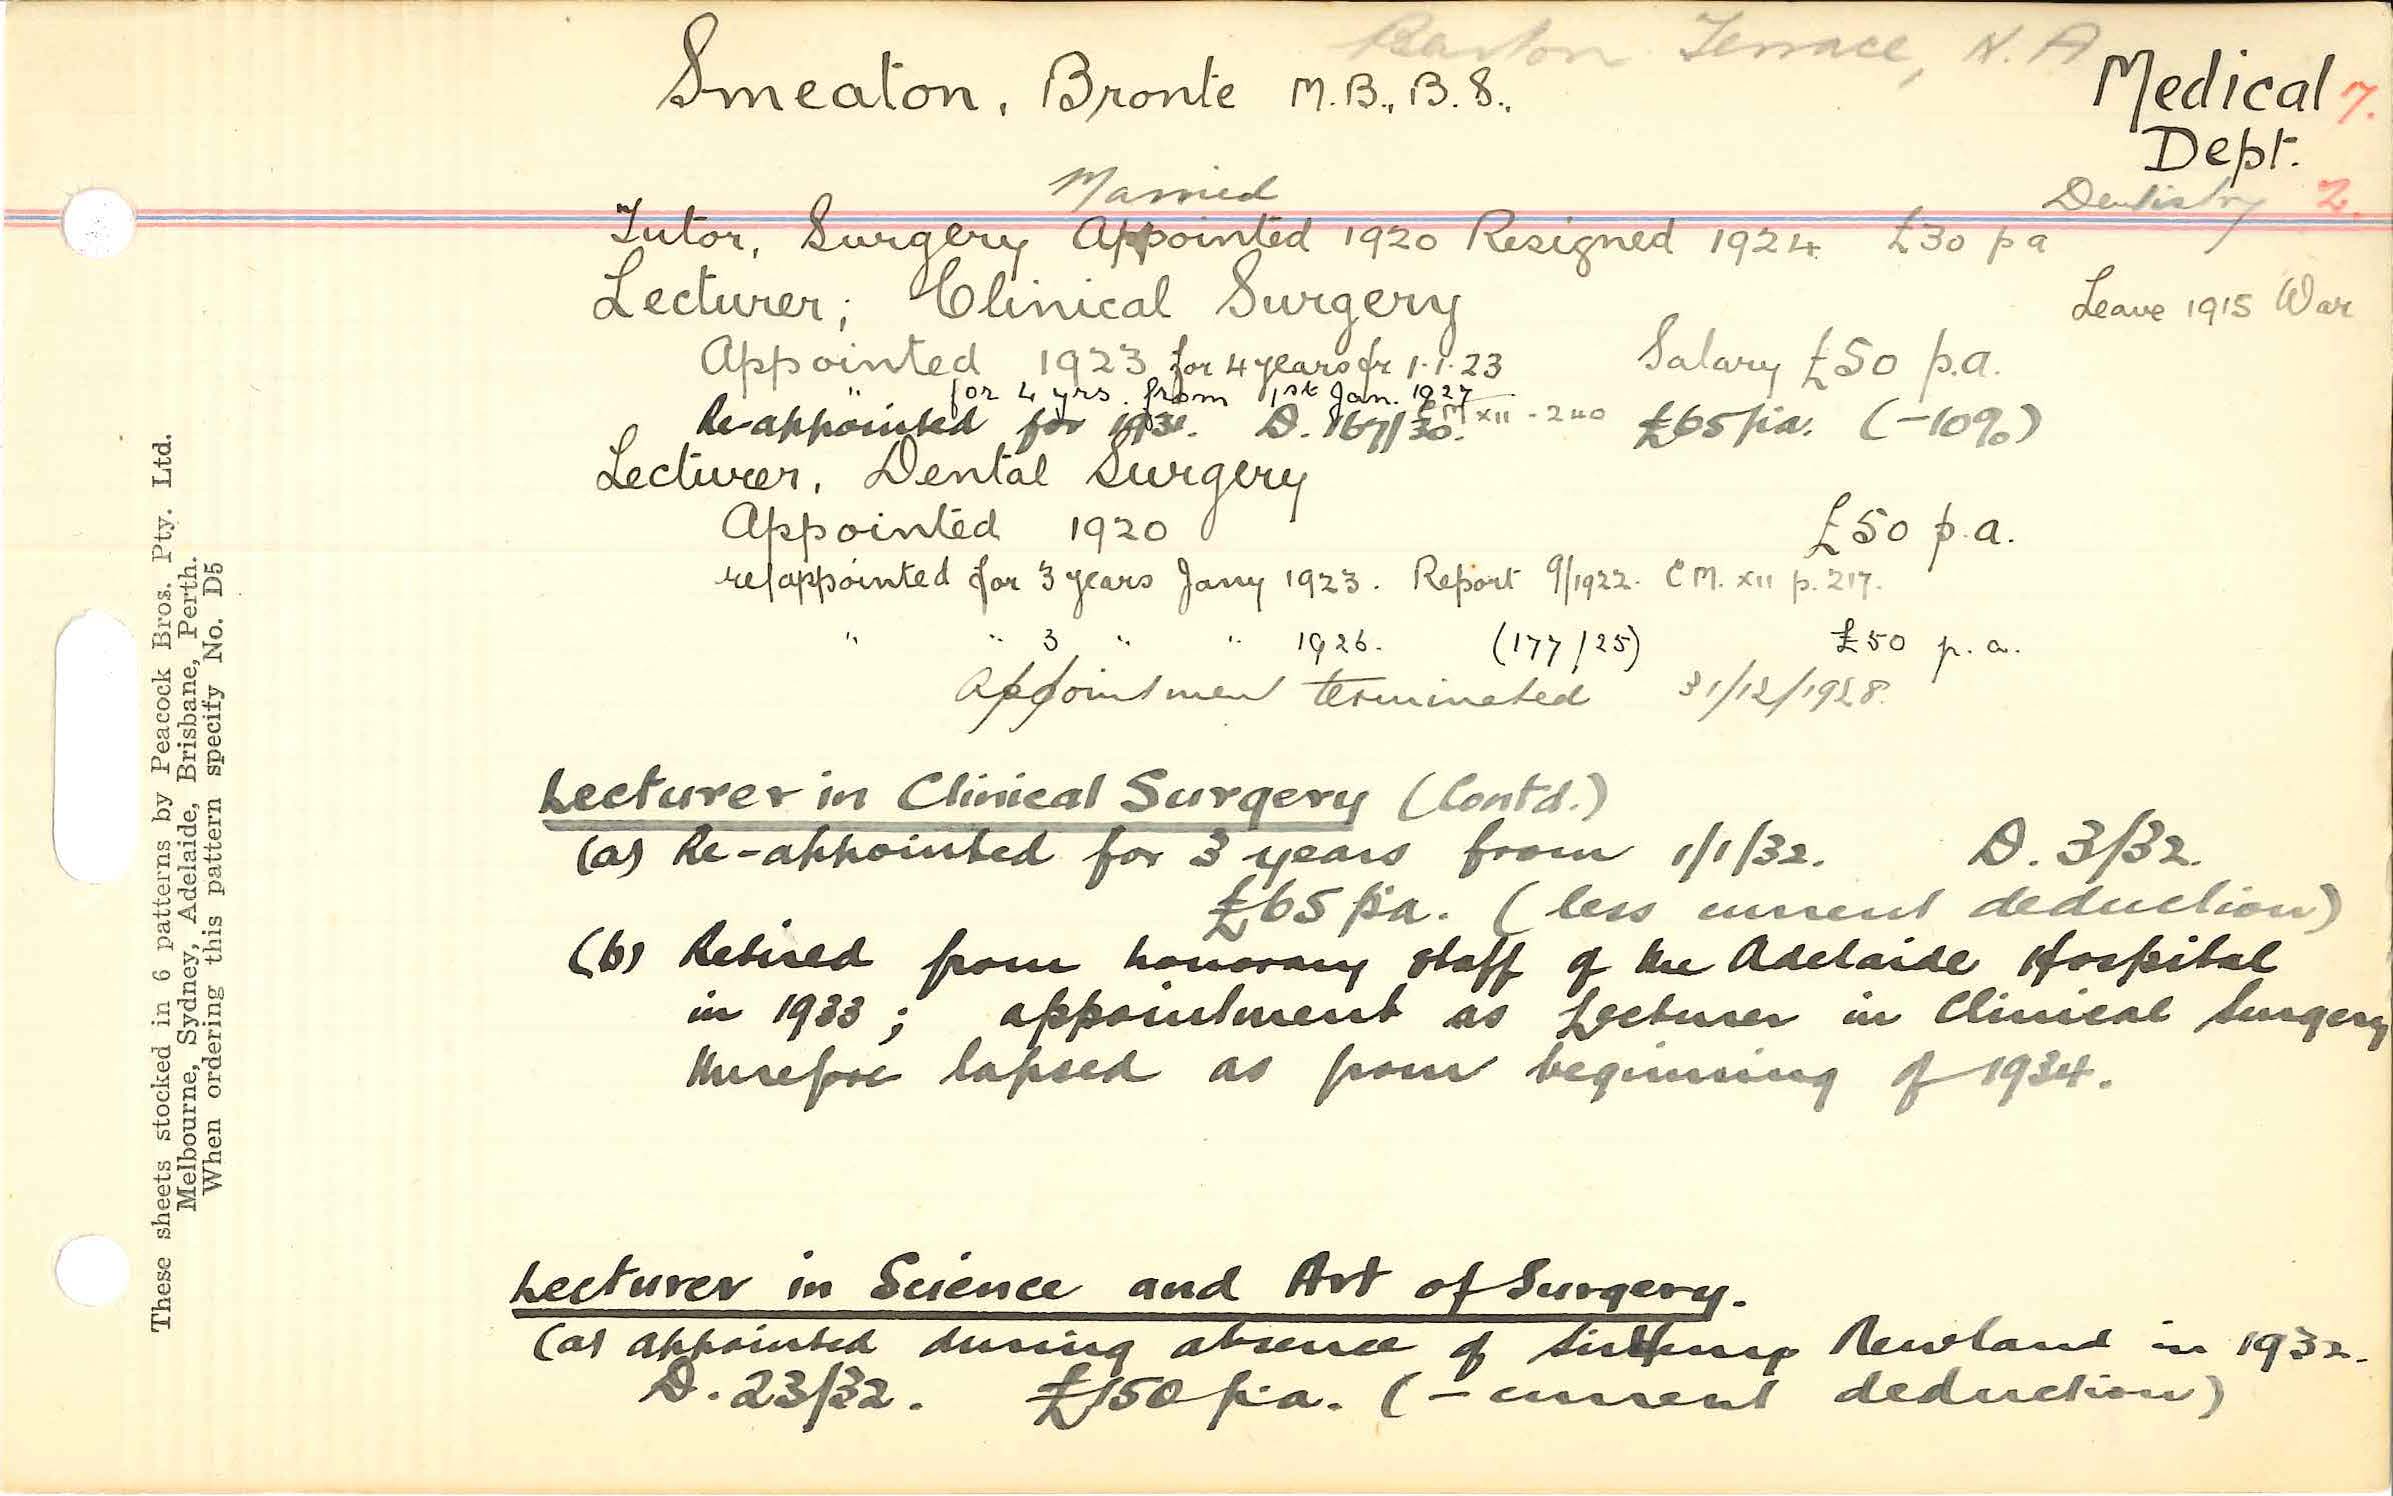 Barton Terrace, N.A
Smeaton, Bronte M.B., B.S.,
Medical 7.
Dept.
Married
Dentistry 2.
Tutor, Surgery Appointed 1920 Resigned 1924 £30 pa
Lecturer; Clinical Surgery
Leave 1915 War
Appointed 1923 for 4 years fr 1.1.23 Salary £50 p.a.
" for 4 yrs. from 1st Jan. 1927
CM XII - 240
Re-appointed for 1931. D. 167/30. £65 p.a. (-10%)
Lecturer, Dental Surgery
Appointed 1920 £50 p.a.
re/appointed for 3 years Jany 1923. Report 9/1922. C M. XII p. 217.
" " 3 " " 1926. (177/25) £50 p.a.
Appointment terminated 31/12/1928.
Lecturer in Clinical Surgery (Contd.)
(a) Re-appointed for 3 years from 1/1/32. D. 3/32.
£65 p.a. (less current deduction)
(b) Retired from honorary staff of the Adelaide Hospital
in 1933; appointment as Lecturer in Clinical Surgery
therefore lapsed as from beginning of 1934.
Lecturer in Science and Art of Surgery.
(a) Appointed during absence of Sir Newland in 1932.
D. 23/32. £150 p.a. (- current deduction)
These sheets stocked in 6 patterns by Peacock Bros. Pty. Ltd.
Melbourne, Sydney, Adelaide, Brisbane, Perth.
When ordering this pattern specify No. D5